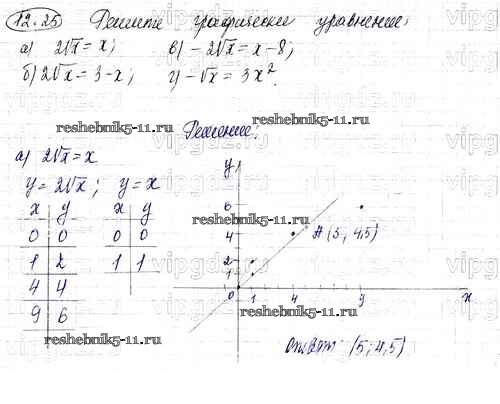 12.25 Решите графически уравнение:
а) 2√x = x; в) -2√x = x-8;
б) 2√x = 3-x; г) -√x = 3x².
reshebnik5-11.ru
Решение:
а) 2√x = x
y = 2√x; y = x
x y x y
0 0 0 0
1 2 1 1
4 4
9 6
reshebnik5-11.ru
y
6
4
2
1
0 1 4 9 x
A (5; 4,5)
reshebnik5-11.ru
reshebnik5-11.ru
Ответ: (5; 4,5)
vipgdz.ru